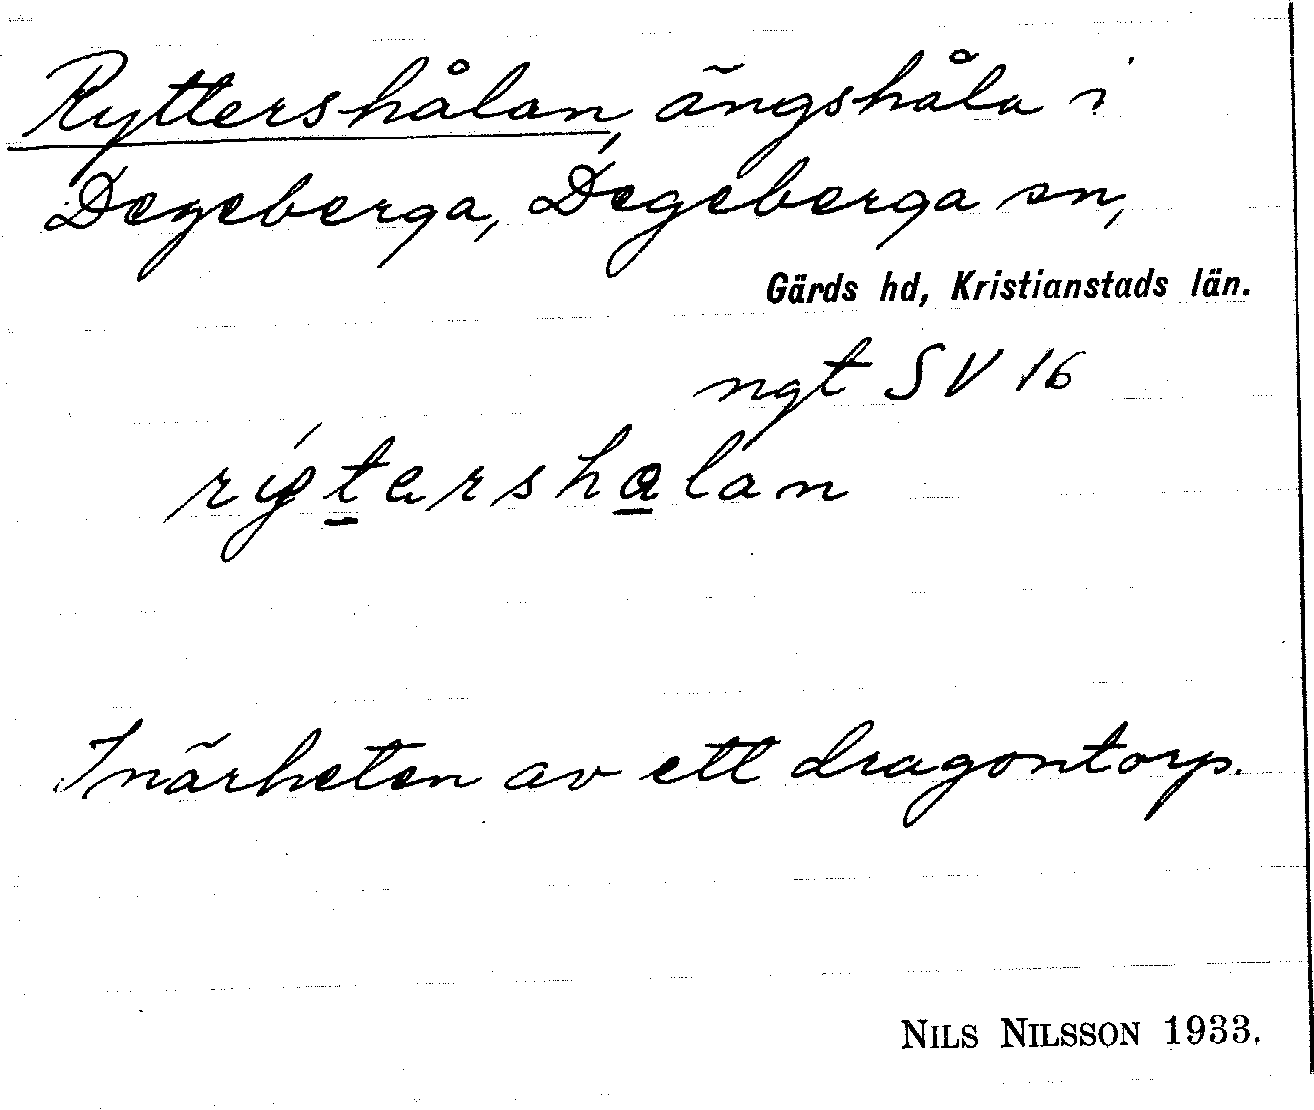 Ryttershålan, ängshåla i
Degeberga, Degeberga sn,
Gärds hd, Kristianstads län.
ngt SV 16
I närheten av ett dragontorp.
NILS NILSSON 1933.